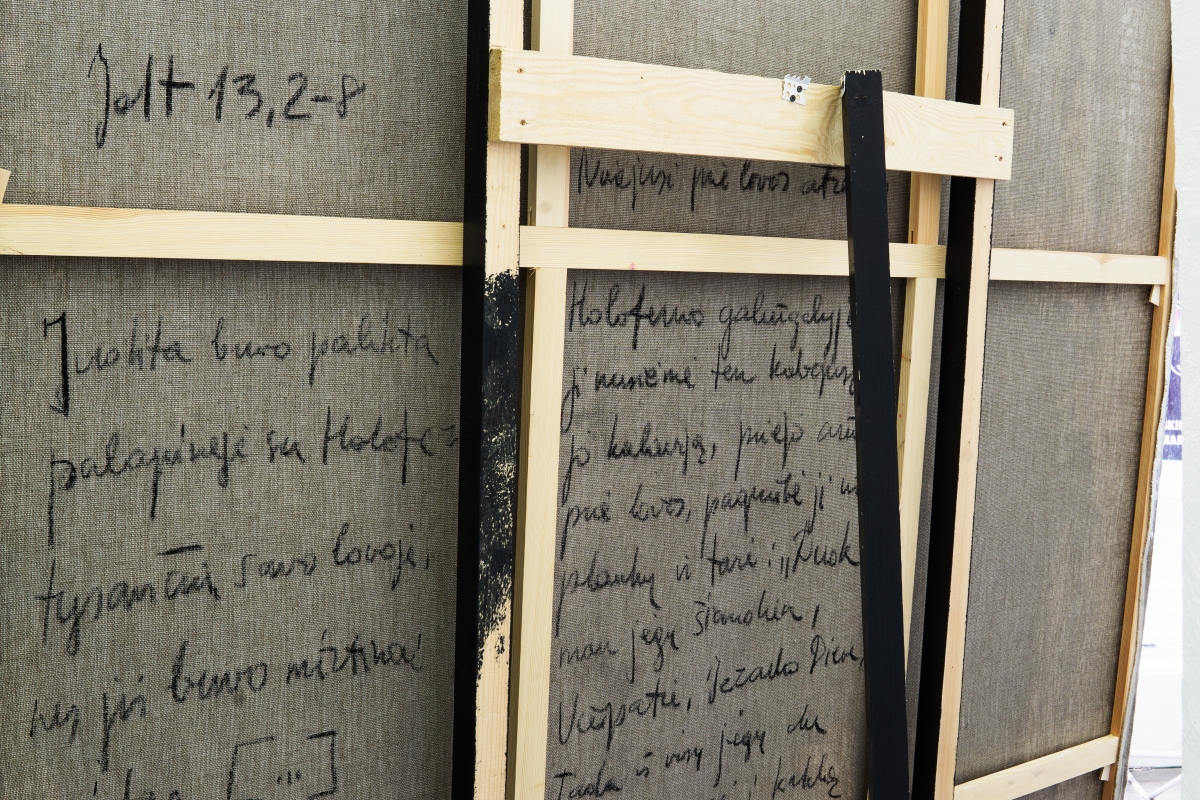 Jdt 13,2-8
Judita buvo palikta
palapinėje su Holofe
tysančiu savo lovoje,
nes jis buvo mirtinai
[...]
Nuėjusi prie lovos atra
Holoferno galūgalyj
ji nusiėmė ten kabojusį
jo kalaviją, priėjo arti
prie lovos, pagriebė jį
plaukų ir tarė: „Duok
man jėgų šiandien,
Viešpatie, Izraelio Dieve,
Tada iš visų jėgų du
kaklą